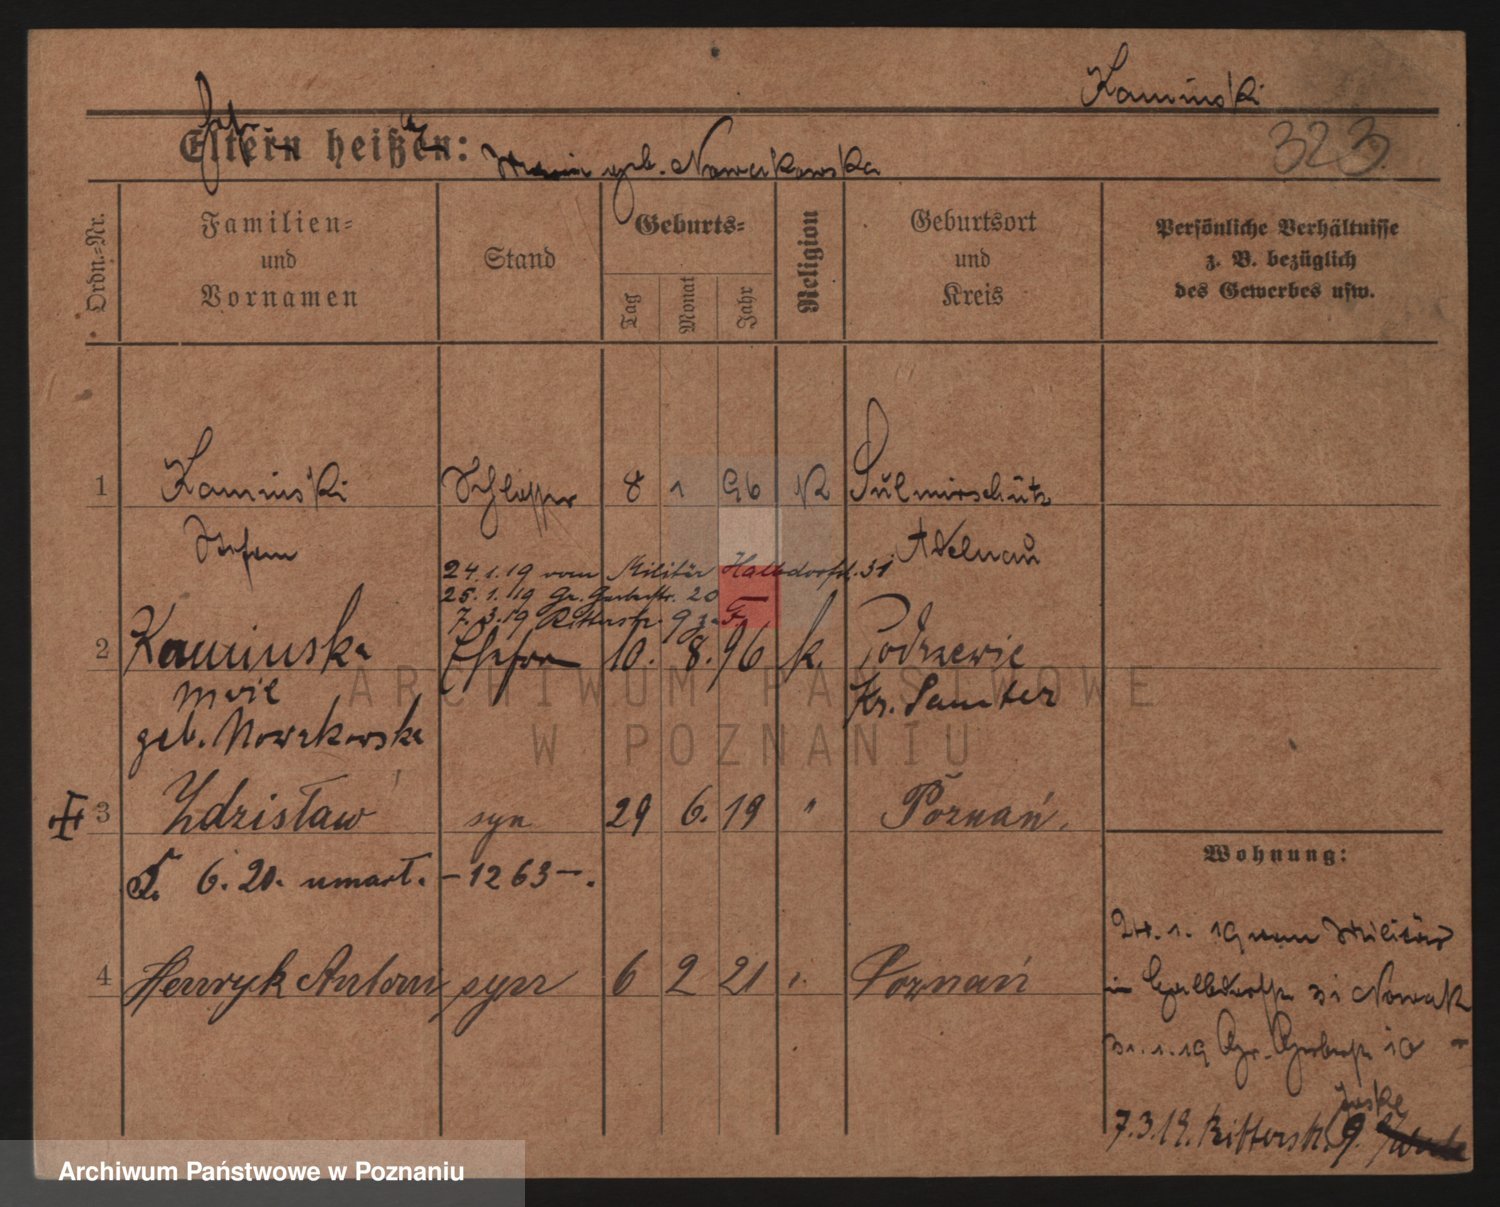 Kaminski
323.
Eltern heißen:
geb. Nowakowska
Ordn.-Nr.
Familien-
und
Vornamen
Stand
Geburts-
Tag
Monat
Jahr
Religion
Geburtsort
und
Kreis
Persönliche Verhältnisse
z. B. bezüglich
des Gewerbes usw.
1 Kaminski Schlosser 8 1 96 K Sulmirschütz
Stefan Adelnau
24.1.19 vom Militär Halbdorfstr. 31
25.1.19 Gr. Gerberstr. 20
7.3.19 Ritterstr. 9
2 Kaminska Ehefrau 10. 8. 96 k. Podrzewie
Marie Kr. Samter
geb. Nowakowska
3 Zdzisław syn 29 6. 19 " Poznań.
6. 20. umarł. -1263-.
Wohnung:
4 Henryk Antoni syn 6 2 21 Poznań
24. 1. 19 vom Militär
in Halbdorfstr 31 Nowak
31.1.19 Gr. Gerberstr
Juske
7.3.19. Ritterstr. 9.
ARCHIWUM PAŃSTWOWE
W POZNANIU
Archiwum Państwowe w Poznaniu